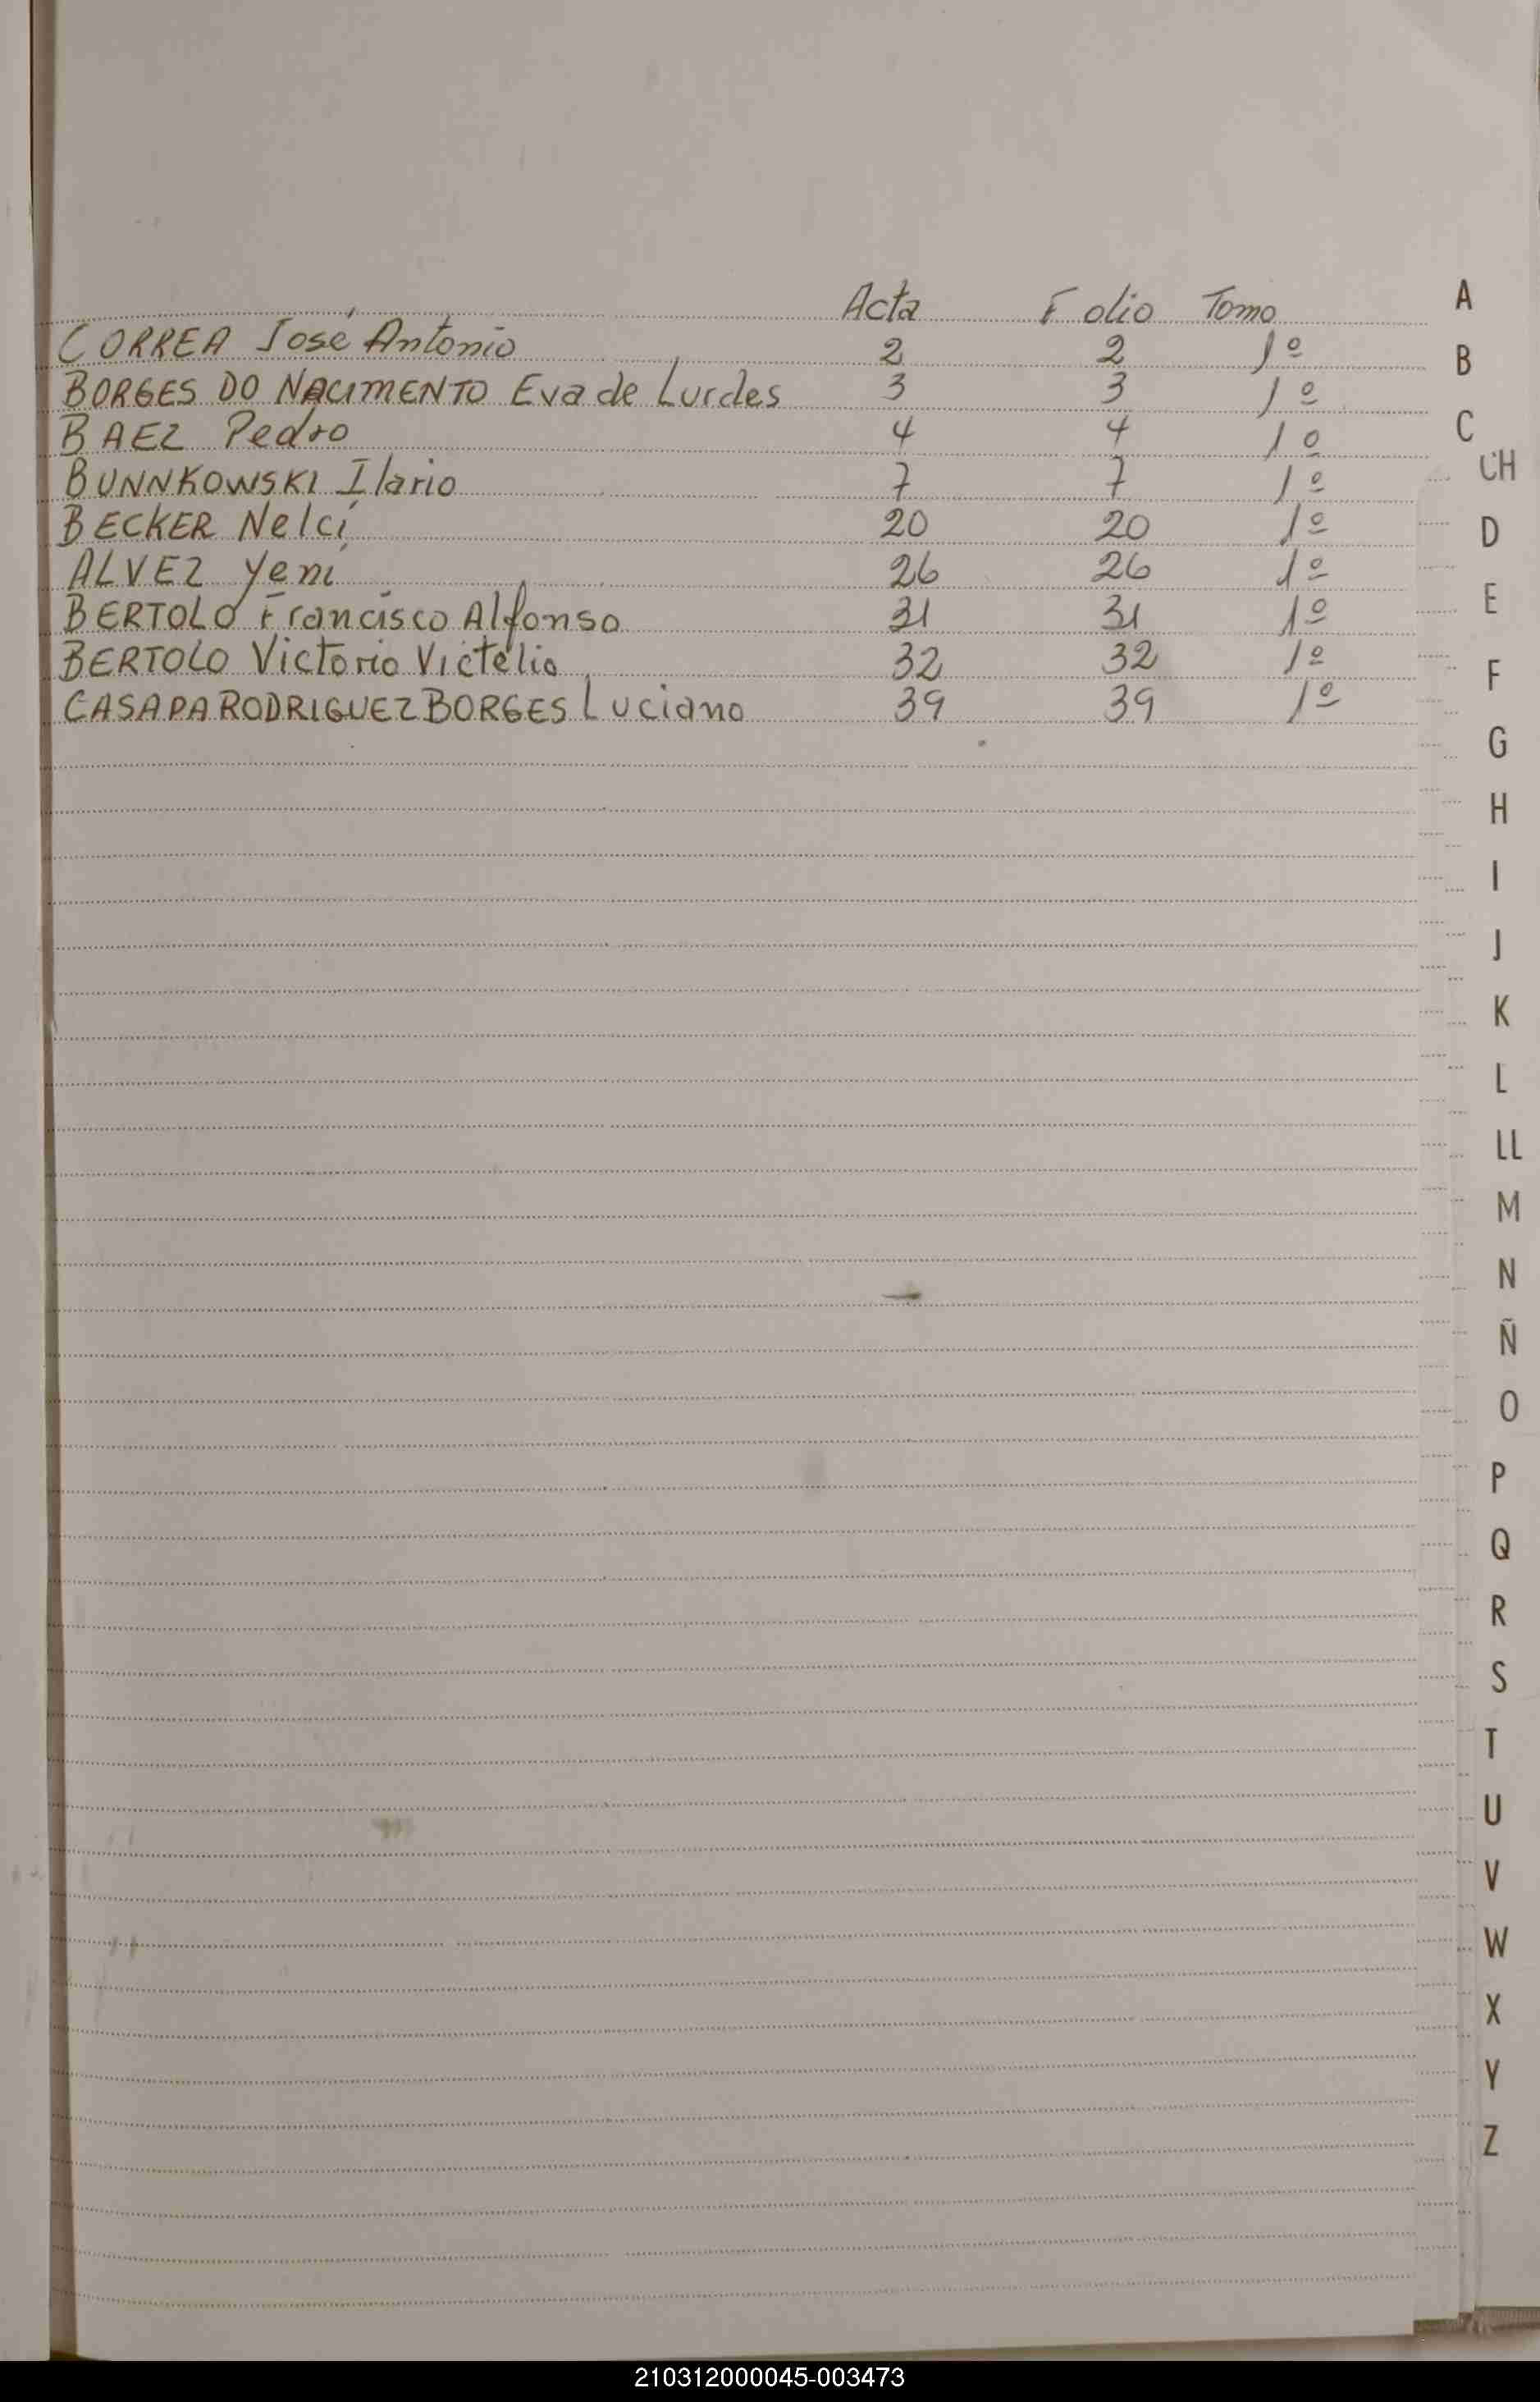 Acta Folio Tomo
CORREA José Antonio 2 2 1º
BORGES DO NACIMENTO Eva de Lurdes 3 3 1º
BAEZ Pedro 4 4 1º
BUNNKOWSKI Ilario 7 7 1º
BECKER Nelci 20 20 1º
ALVEZ Yeni 26 26 1º
BERTOLO Francisco Alfonso 31 31 1º
BERTOLO Victorio Victelio 32 32 1º
CASAPA RODRIGUEZ BORGES Luciano 39 39 1º
A
B
C
CH
D
E
F
G
H
I
J
K
L
LL
M
N
Ñ
O
P
Q
R
S
T
U
V
W
X
Y
Z
210312000045-003473